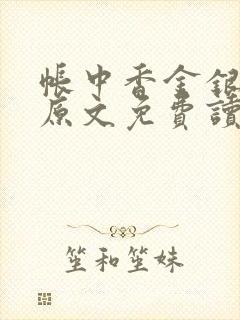 帳中香金銀
原文免費讀
笙和笙妹